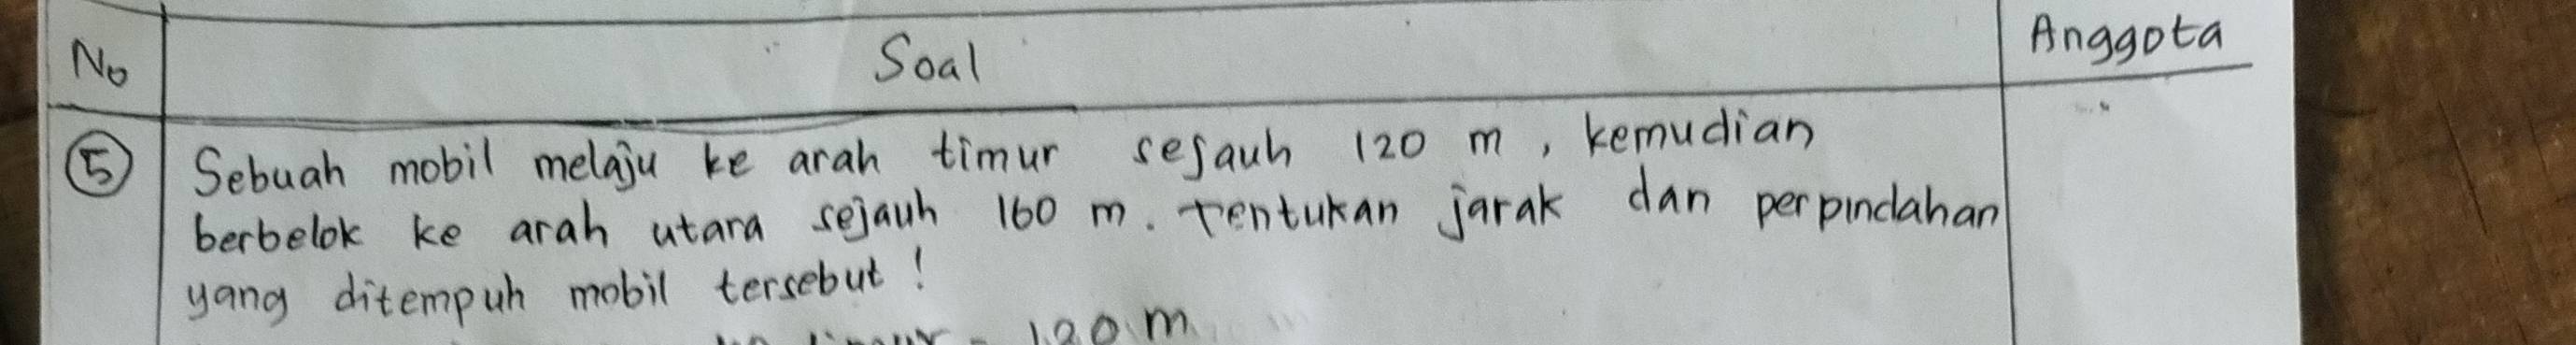 No Soal Anggota
5 Sebuah mobil melaju ke arah timur sejauh 120 m, kemudian
berbelok ke arah utara sejauh 160 m. Tentukan jarak dan perpindahan
yang ditempuh mobil tersebut!
timur = 120 m